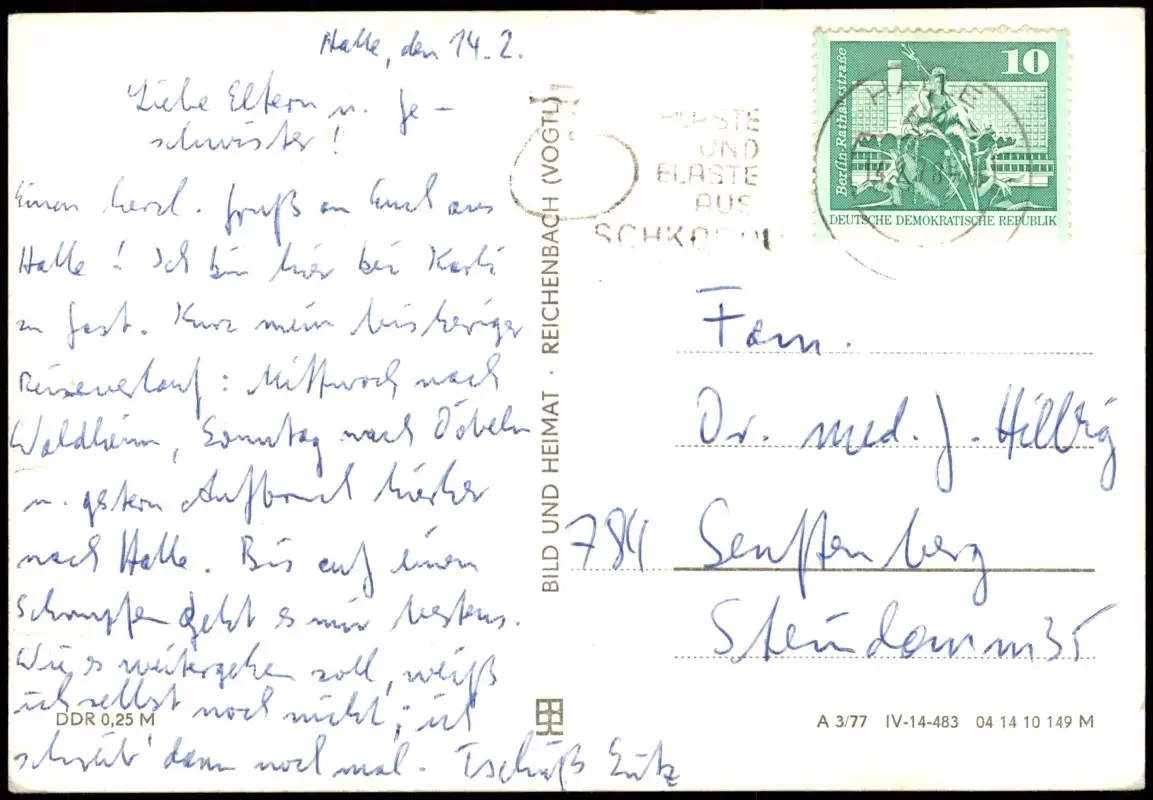 Halle, den 14.2.
Liebe Eltern u. Ge-
schwister!
Einen herzl. Gruß an Euch aus
Halle! Ich bin hier bei Karli
zu Gast. Kurz mein bisheriger
Reiseverlauf: Mittwoch nach
Waldheim, Sonntag nach Döbeln
u. gestern Aufbruch hierher
nach Halle. Bis auf einen
Schnupfen geht es mir bestens.
Wie es weitergehen soll, weiß
ich selbst noch nicht; ich
schreib' dann noch mal. Tschüß
DDR 0,25 M
BILD UND HEIMAT · REICHENBACH (VOGTL)
PLASTE
UND
ELASTE
AUS
SCHKOPAU
HALLE
10
Berlin-Rathausstraße
DEUTSCHE DEMOKRATISCHE REPUBLIK
Fam.
Dr. med. J. Hillbig
784 Senftenberg
Steindamm 35
A 3/77 IV-14-483 04 14 10 149 M